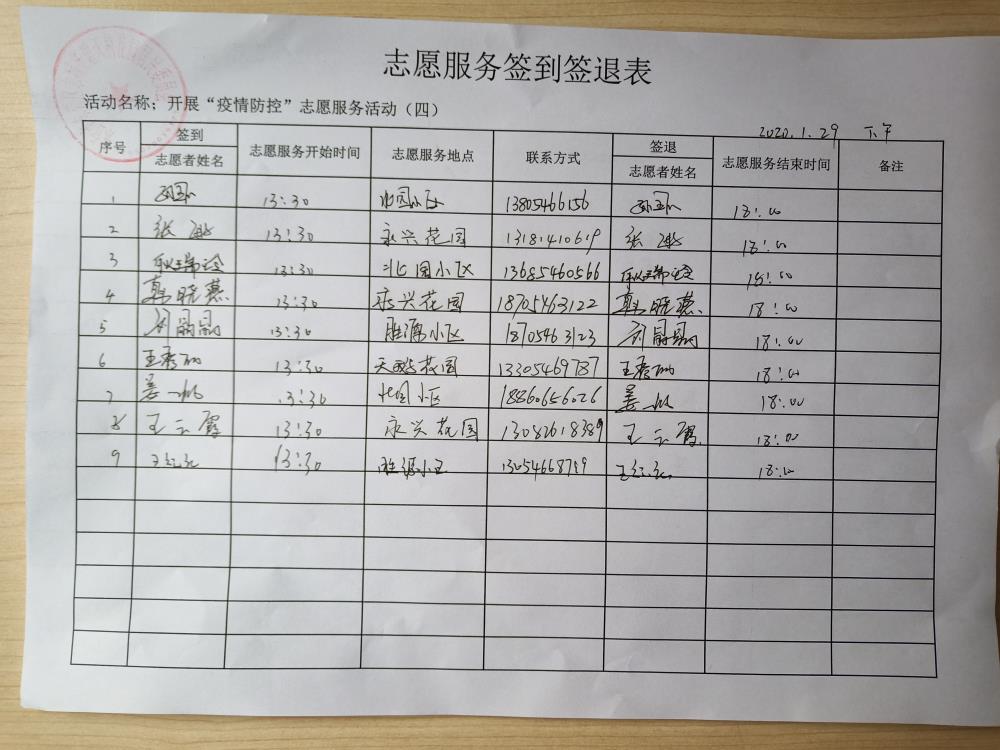 志愿服务签到签退表
活动名称：开展“疫情防控”志愿服务活动（四）
2020.1.29 下午
序号 签到 志愿者姓名 志愿服务开始时间 志愿服务地点 联系方式 签退 志愿者姓名 志愿服务结束时间 备注
1 13:30 北园小区 13805466156 18:00
2 张 13:30 永兴花园 13181410619 张 18:00
3 耿瑞玲 13:30 北园小区 13685460566 耿瑞玲 18:00
4 郭晓燕 13:30 永兴花园 18705463122 郭晓燕 18:00
5 13:30 胜源小区 18705463123 18:00
6 王秀 13:30 天鹅花园 13305469787 王秀 18:00
7 姜一帆 13:30 北园小区 18860656026 姜一帆 18:00
8 王云霞 13:30 永兴花园 13082618389 王云霞 18:00
9 王红 13:30 胜源小区 王红 18:00